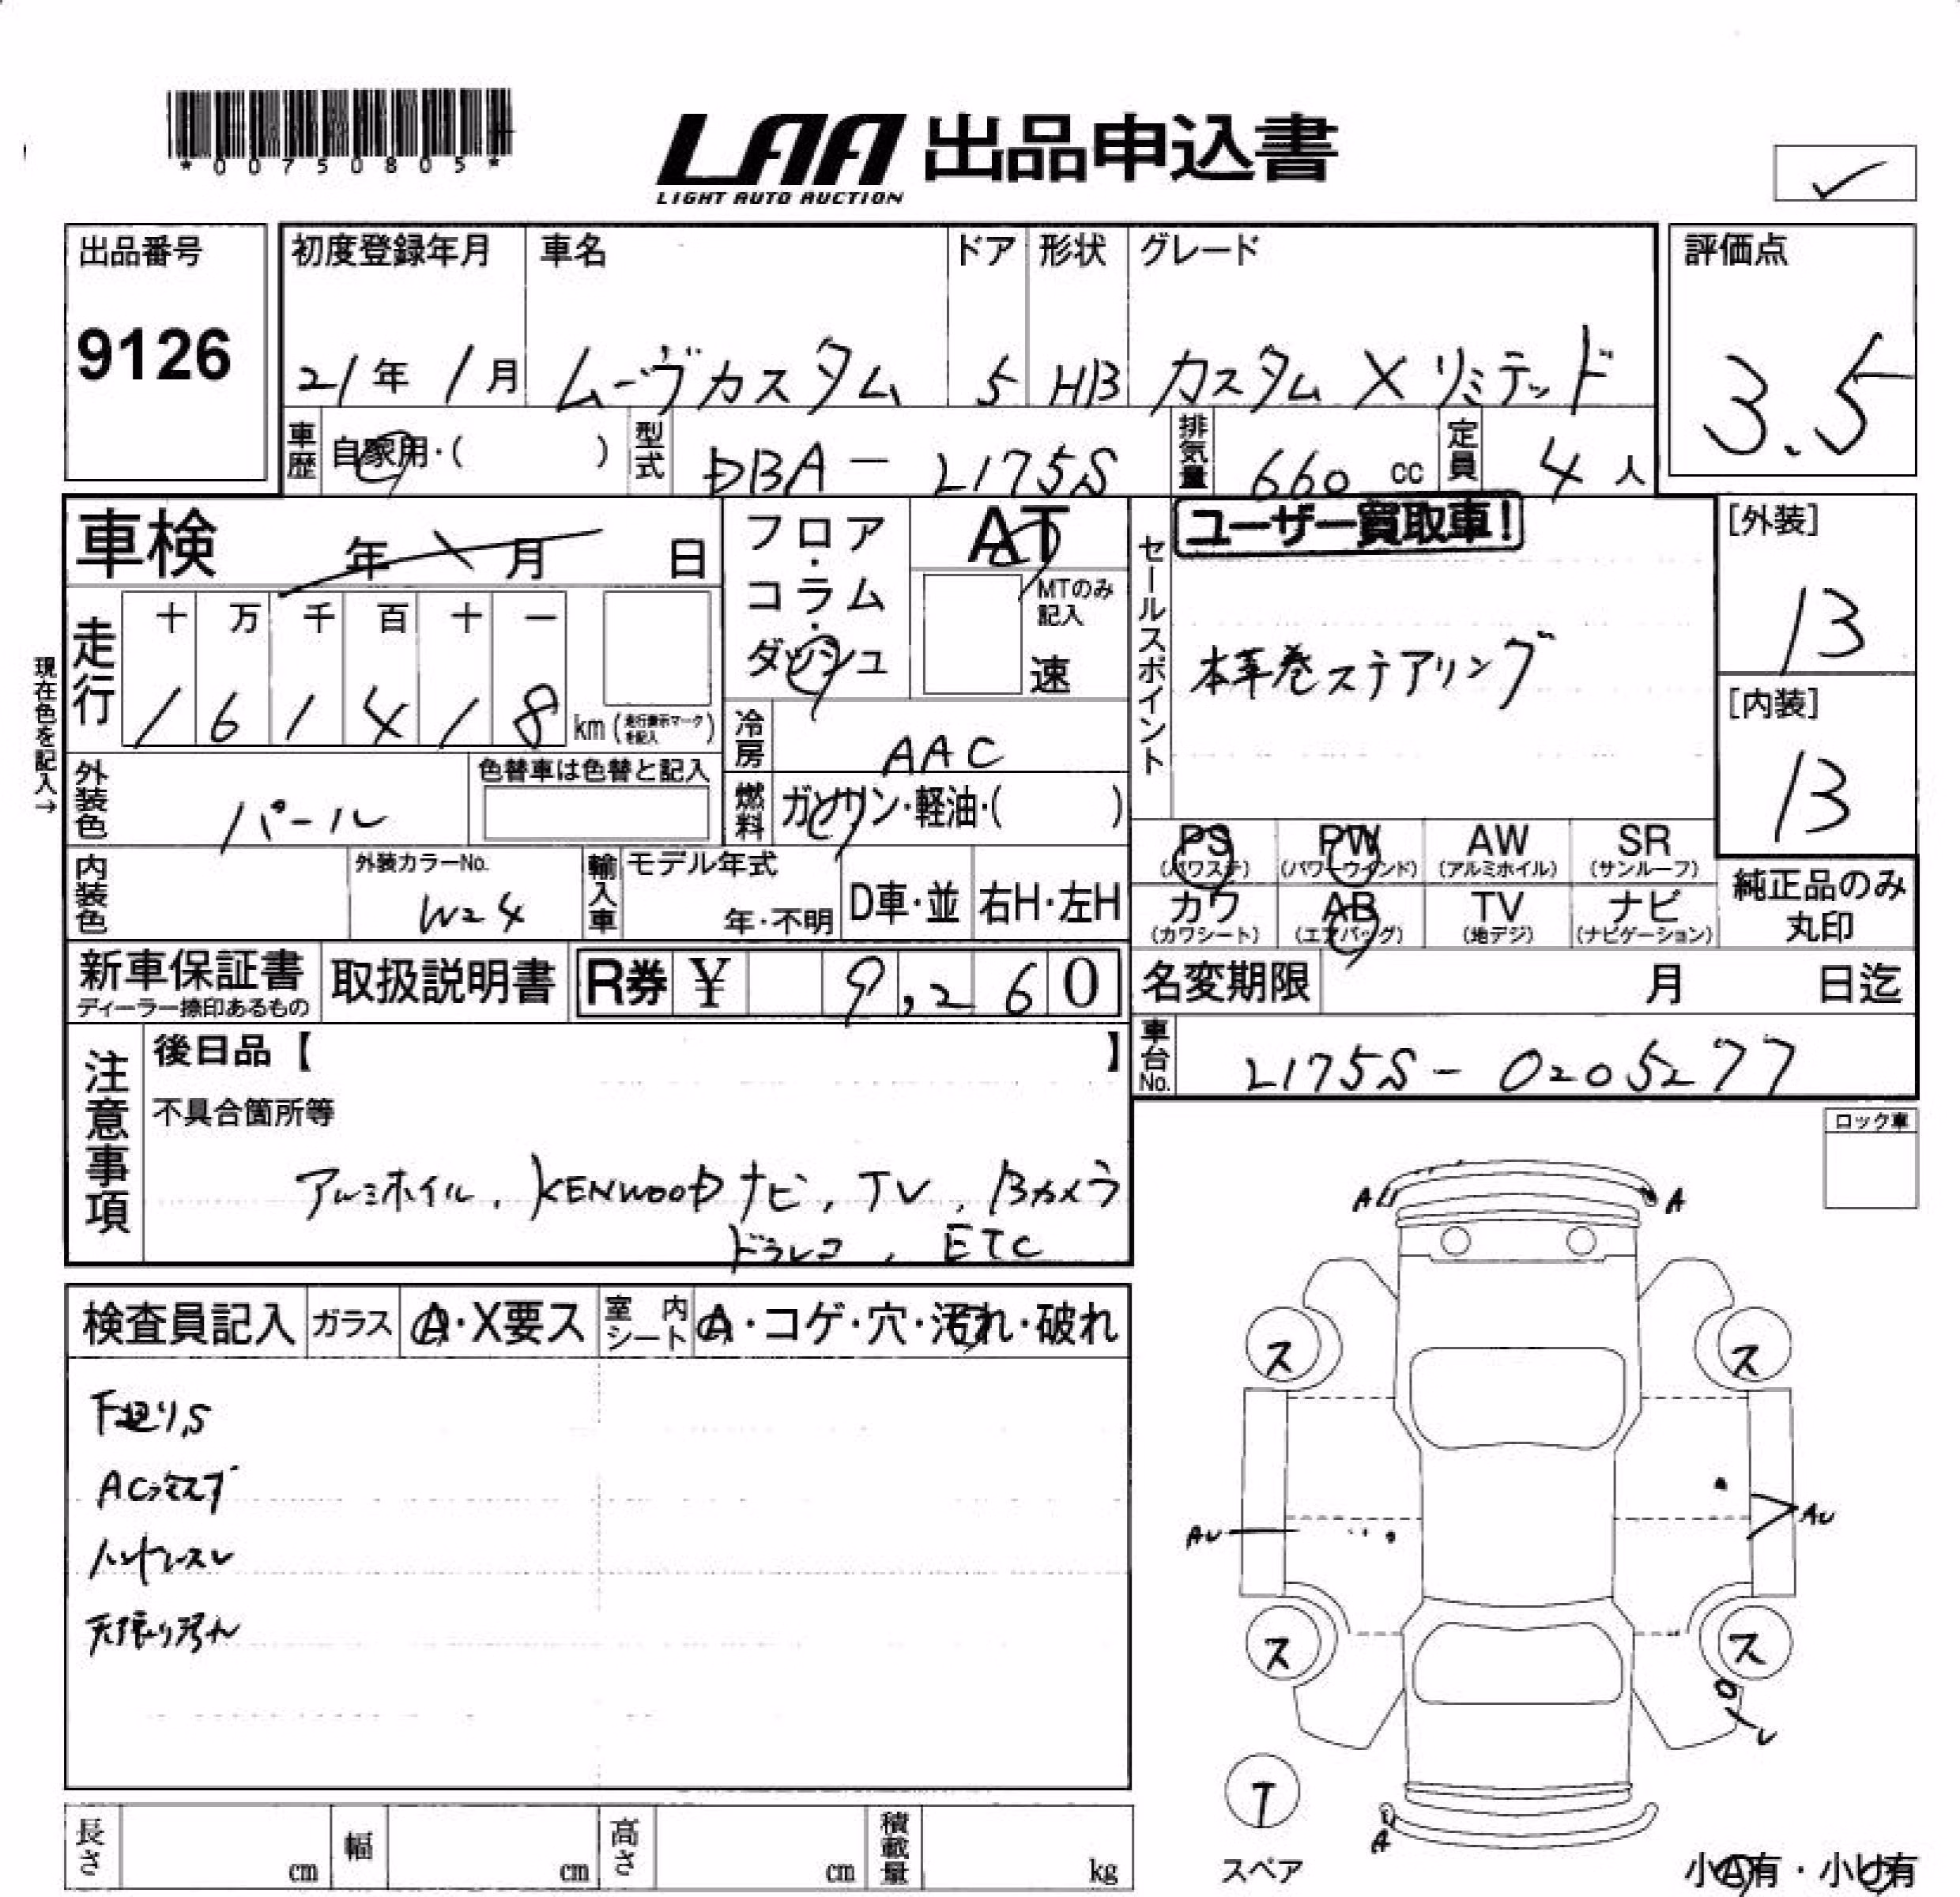 *00750805*
LAA 出品申込書
LIGHT AUTO AUCTION
出品番号
9126
初度登録年月 車名 ドア 形状 グレード
21年 1月 ムーヴカスタム 5 HB カスタム X リミテッド
評価点
3.5
車歴 自家用・( ) 型式 DBA-L175S 排気量 660 cc 定員 4 人
車検 年 月 日
フロア・コラム・ダッシュ
AT
MTのみ記入
速
セールスポイント
ユーザー買取車!
本革巻ステアリング
[外装]
13
[内装]
13
現在色を記入→
走行
十 万 千 百 十 一
1 6 1 4 1 8 km (走行表示マークを記入)
冷房 AAC
外装色 パール 色替車は色替と記入
燃料 ガソリン・軽油・( )
PS (パワステ) PW (パワーウインド) AW (アルミホイル) SR (サンルーフ)
カワ (カワシート) AB (エアバッグ) TV (地デジ) ナビ (ナビゲーション)
純正品のみ丸印
内装色 外装カラーNo. W24 輸入車 モデル年式 年・不明 D車・並 右H・左H
新車保証書 ディーラー捺印あるもの 取扱説明書 R券 ¥ 9,260
名変期限 月 日迄
車台No. L175S-0205277
注意事項
後日品【 】
不具合箇所等
アルミホイル, KENWOODナビ, TV, Bカメラ
ドラレコ, ETC
ロック車
検査員記入 ガラス A・X要ス 室内シート A・コゲ・穴・汚れ・破れ
下廻りS
ハンドルスレ
天張り汚れ
A A
ス ス
AU AU
ス ス
U
T
A
スペア
小A有・小U有
長さ cm 幅 cm 高さ cm 積載量 kg